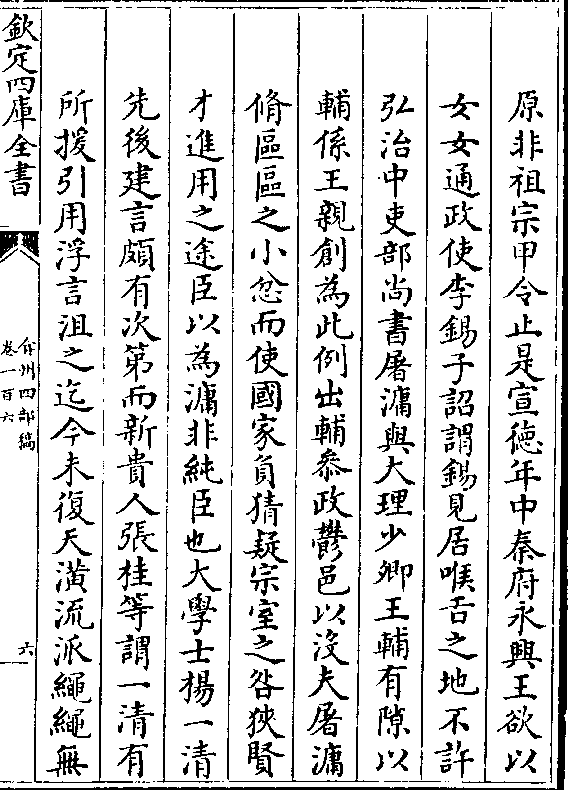 原非祖宗甲令止是宣徳年中秦府永興王欲以
女女通政使李錫子詔謂錫見居喉舌之地不許
弘治中吏部尚書屠滽與大理少卿王輔有隙以
輔係王親創為此例出輔叅政鬱邑以沒夫屠滽
脩區區之小忿而使國家負猜疑宗室之咎狹賢
才進用之途臣以為滽非純臣也大學士楊一清
先後建言頗有次第而新貴人張桂等謂一清有
所援引用浮言沮之迄今未復天潢流派繩繩無
欽定四庫全書
弇州四部稿
卷一百六
六